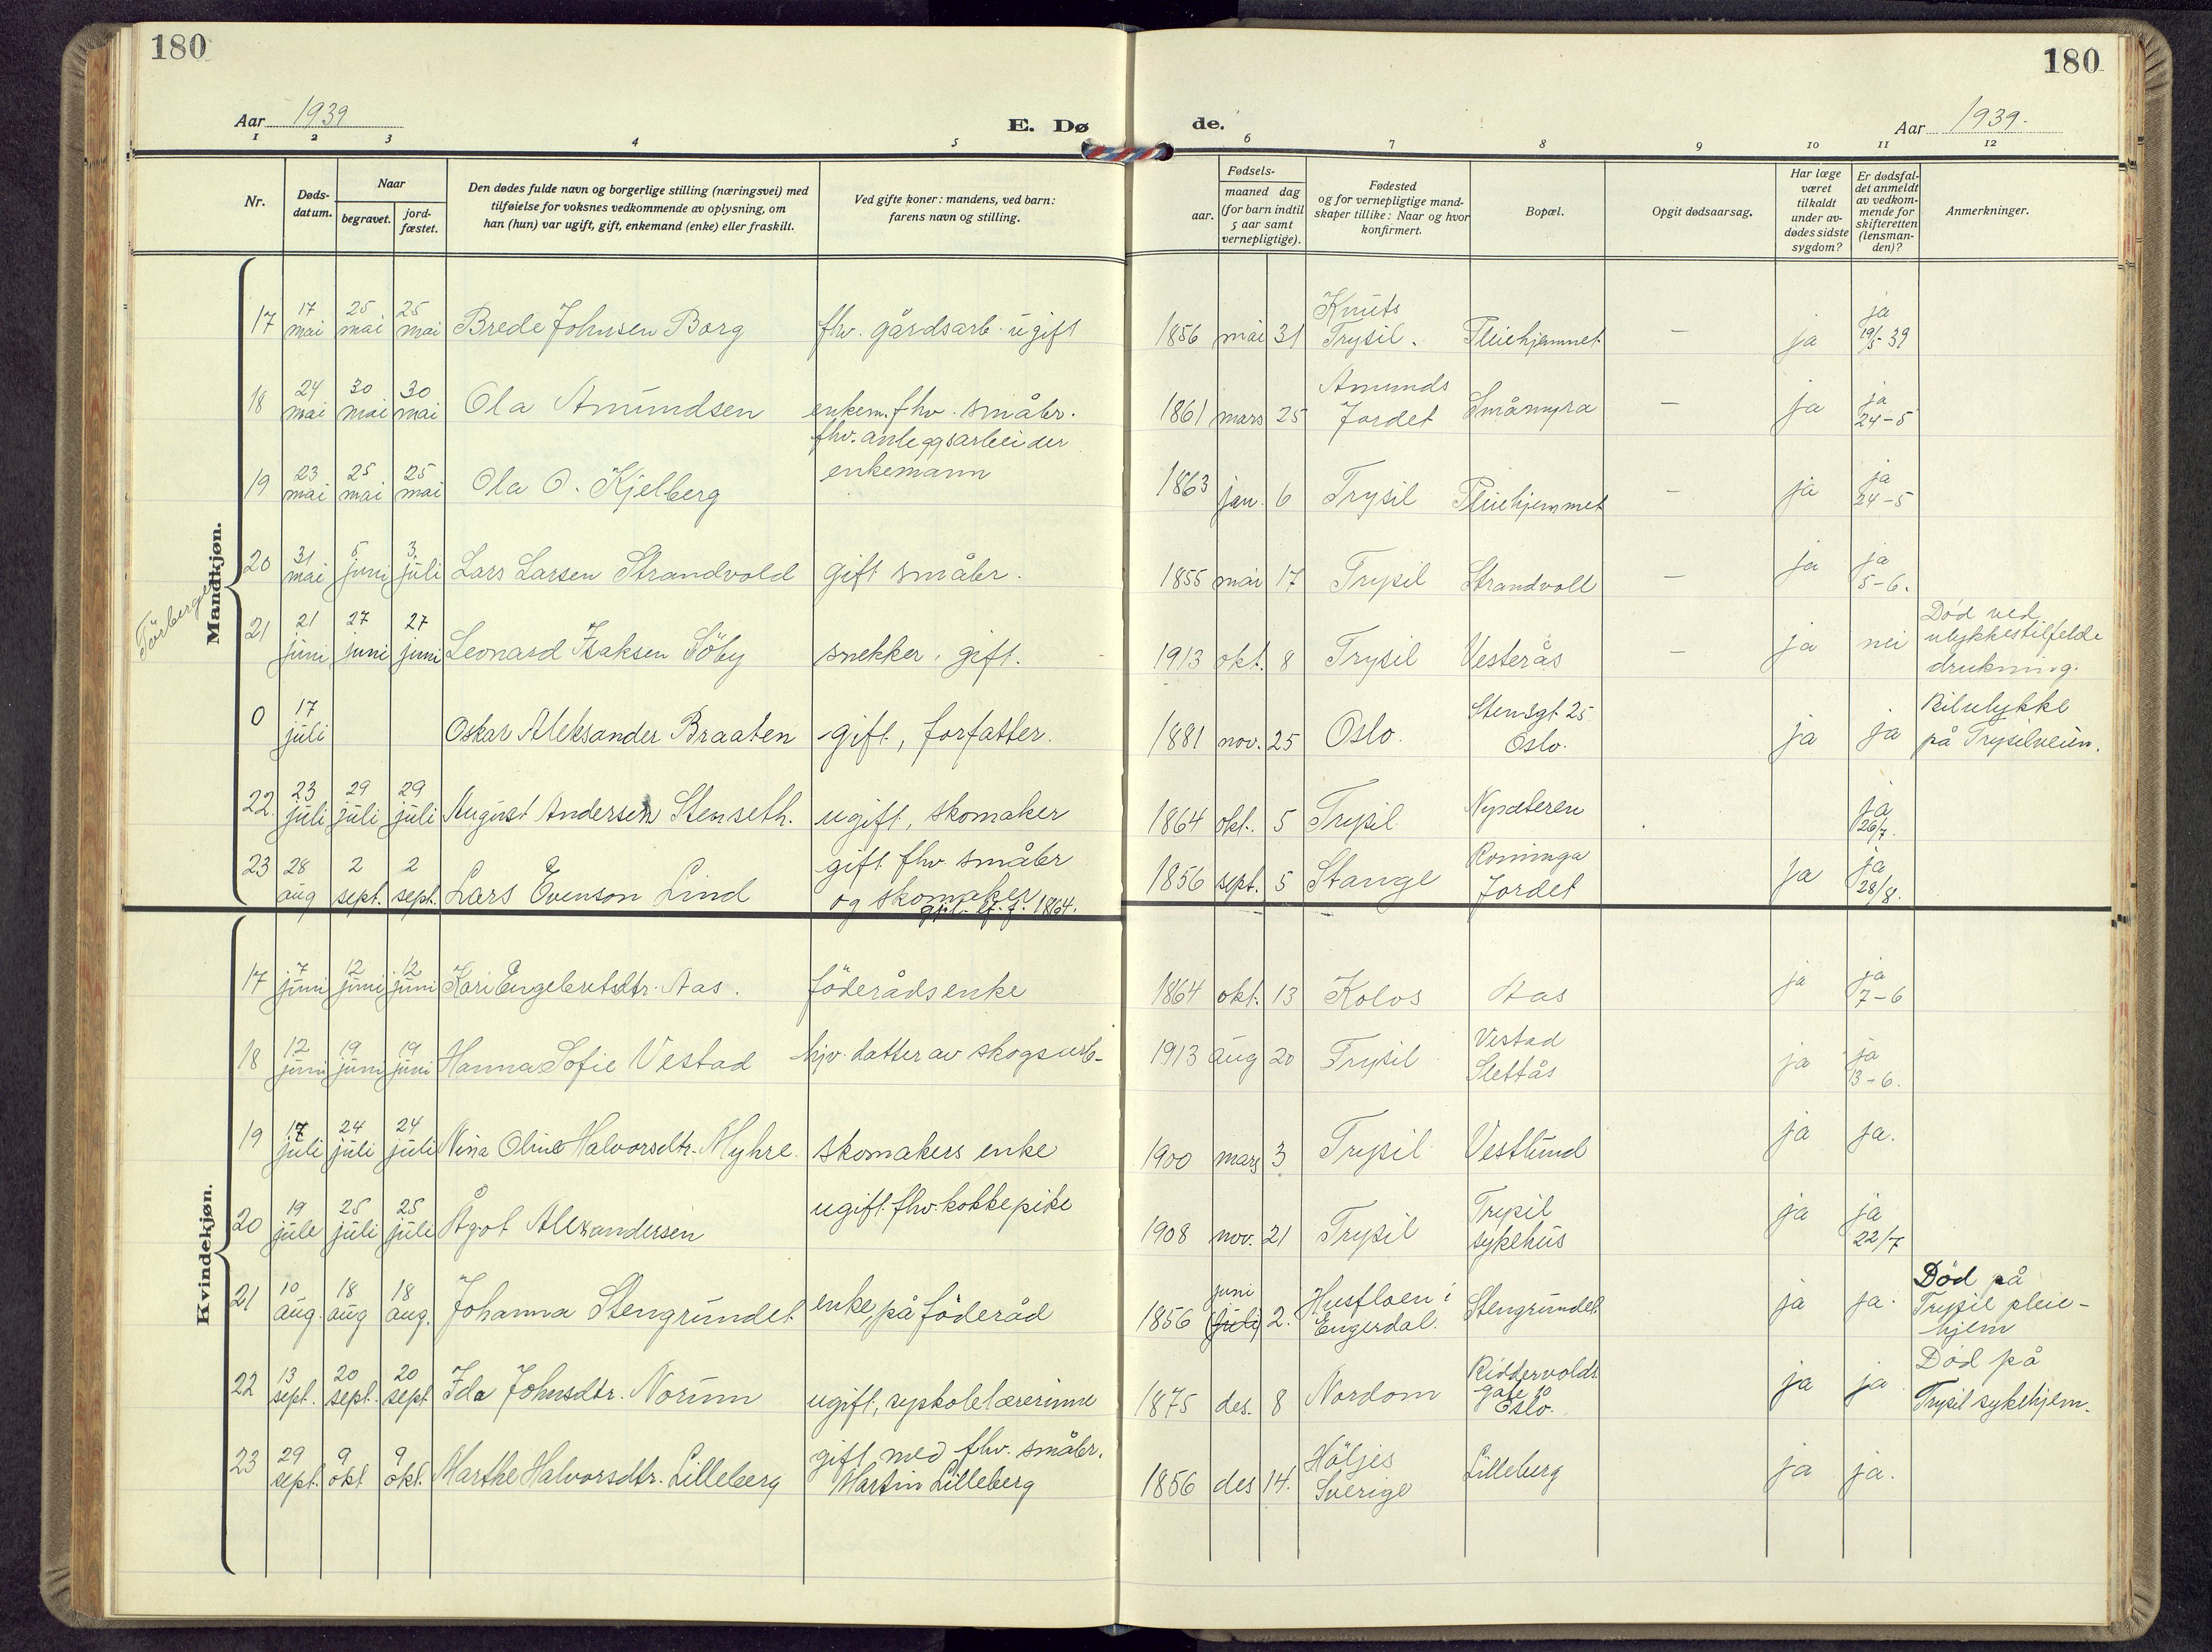 180
180
Aar 1939
E. Dø
de.
Aar 1939.
1 2 3 4 5 6 7 8 9 10 11 12
Nr.
Døds-
datum.
Naar
begravet.
jord-
fæstet.
Den dødes fulde navn og borgerlige stilling (næringsvei) med
tilføielse for voksnes vedkommende av oplysning, om
han (hun) var ugift, gift, enkemand (enke) eller fraskilt.
Ved gifte koner: mandens, ved barn:
farens navn og stilling.
Fødsels-
aar.
maaned dag
(for barn indtil
5 aar samt
vernepligtige).
Fødested
og for vernepligtige mand-
skaper tillike: Naar og hvor
konfirmert.
Bopæl.
Opgit dødsaarsag.
Har læge
været
tilkaldt
under av-
dødes sidste
sygdom?
Er dødsfal-
det anmeldt
av vedkom-
mende for
skifteretten
(lensman-
den)?
Anmerkninger.
Mandkjøn.
17 17 mai 25 mai 25 mai Brede Johnsen Borg fhv. gårdsarb. ugift 1856 mai 31 Knuts Trysil. Pleiehjemmet — ja ja 19/5-39
18 24 mai 30 mai 30 mai Ola Amundsen enkem. fhv. småbr. 1861 mars 25 Amunds Jordet Småmyra — ja ja 24-5
19 23 mai 25 mai 25 mai Ola O. Kjelberg fhv. anleggsarbeider enkemann 1863 jan. 6 Trysil Pleiehjemmet — ja ja 24-5
20 31 mai 5 juni 3. juli Lars Larsen Strandvold gift småbr. 1855 mai 17 Trysil Strandvoll — ja ja 5-6.
21 21 juni 27 juni 27 juni Leonard Isaksen Söby snekker, gift. 1913 okt. 8 Trysil Vesterås — ja nei Död ved ulykkestilfelde drukning.
0 17 juli Oskar Aleksander Braaten gift, forfatter. 1881 nov. 25 Oslo. Stensgt 25 Oslo. ja ja Bilulykke på Trysilveien.
22. 23 juli 29 juli 29 juli August Andersen Stenseth. ugift, skomaker 1864 okt. 5 Trysil Nysæteren ja 26/7.
23 28 aug 2 sept. 2 sept. Lars Evenson Lind gift fhv. småbr og skomaker 1864. 1856 sept. 5 Stange Rominga Jordet ja ja 28/8.
Kvindekjøn.
17 7 juni 12 juni 12 juni Kari Engebretsdtr. Aas. föderådsenke 1864 okt. 13 Kolos Aas ja ja 7-6
18 12 juni 19 juni 19 juni Hanna Sofie Vestad hjv. datter av skogsarb- 1913 aug 20 Trysil Vestad Slettås ja ja 13-6.
19 17 juli 24 juli 24 juli Nina Oline Halvorsdtr. Myhre. skomakers enke 1900 mars 3 Trysil Vestlund ja ja.
20 19 jule 25 juli 25 juli Ågot Alexandersen ugift fhv. kokkepike 1908 nov. 21 Trysil Trysil sykehus ja ja 22/7
21 10 aug. 18 aug 18 aug. Johanna Stengrundet enke, på föderåd 1856 juni (juli) 2. Husfloen i Engerdal. Stengrundet ja ja. Död på Trysil pleie-hjem
22 13 sept. 20 sept. 20 sept Ida Johnsdtr. Norum ugift, syskolelærerinne 1875 des. 8 Nordom Riddervolds gate 10 Oslo. ja ja Död på Trysil sykehjem.
23 29 sept. 9 okt 9 okt. Marthe Halvorsdtr. Lilleberg gift med fhv. småbr. Martin Lilleberg 1856 des 14. Höljes Sverige Lilleberg ja ja.